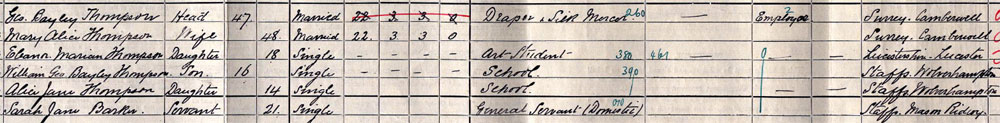 Geo. Bayley Thompson Head 47 Married 22 3 3 0 Draper & Silk Mercer 260 — Employer Surrey. Camberwell
Mary Alice Thompson Wife 48 Married 22 3 3 0 — — Surrey. Camberwell
Eleanor Marian Thompson Daughter 18 Single – – – – Art Student 380 461 — 0 Leicestershire. Leicester
William Geo. Bayley Thompson Son. 16 Single – – – – School. 390 Staffs. Wolverhampton
Alice Jane Thompson Daughter 14 Single – – – School. Staffs. Wolverhampton
Sarah Jane Barker. Servant 21. Single – – – General Servant (Domestic) — Staffs.